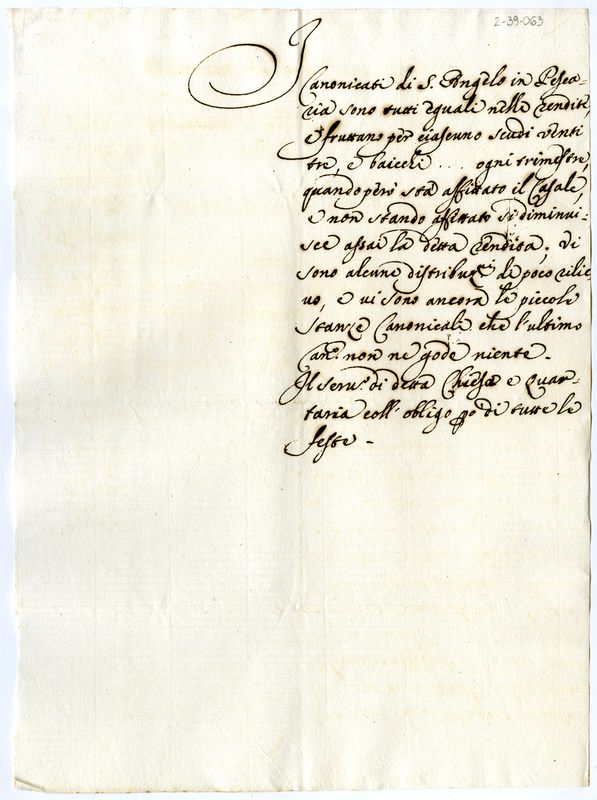 2-39-063
I
Canonicati di S. Angelo in Pesca=
ria sono tutti eguali nelle rendite,
e fruttano per ciascuno scudi venti
tre, e baiocchi . . . . ogni trimestre,
quando però sta affittato il Casale,
e non stando affittato si diminui=
sce assai la detta rendita, vi
sono alcune distribuz.i di poco rilie
vo, e vi sono ancora le piccole
stanze Canonicali che l'ultimo
Can.o non ne gode niente.
Il serv.o di detta Chiesa e quar=
taria coll' obligo po di tutte le
feste -